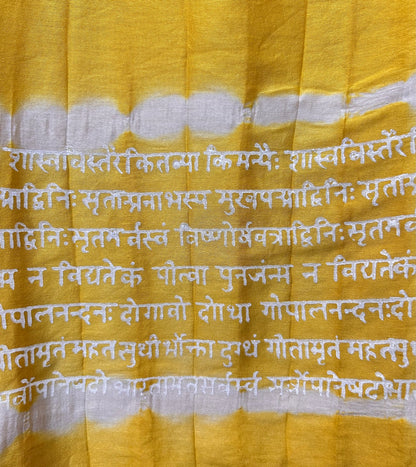 शास्त्रविस्तरैः कितव्या किमन्यैः शास्त्रविस्तरै
द्माद्विनिः सृता पद्मनाभस्य मुखपद्माद्विनिः सृता
द्माद्विनिः सृतम सर्वस्वं विष्णोर्वक्त्राद्विनिः सृतम
म न विद्यतेकं पीत्वा पुनर्जन्म न विद्यतेकं
गोपालनन्दनः दोगावो दोग्धा गोपालनन्दनः दो
गीतामृतं महत सुधीर्भोक्ता दुग्धं गीतामृतं महत सु
सर्वोपनिषदो भारतामृतसर्वस्व सर्वोपनिषदो